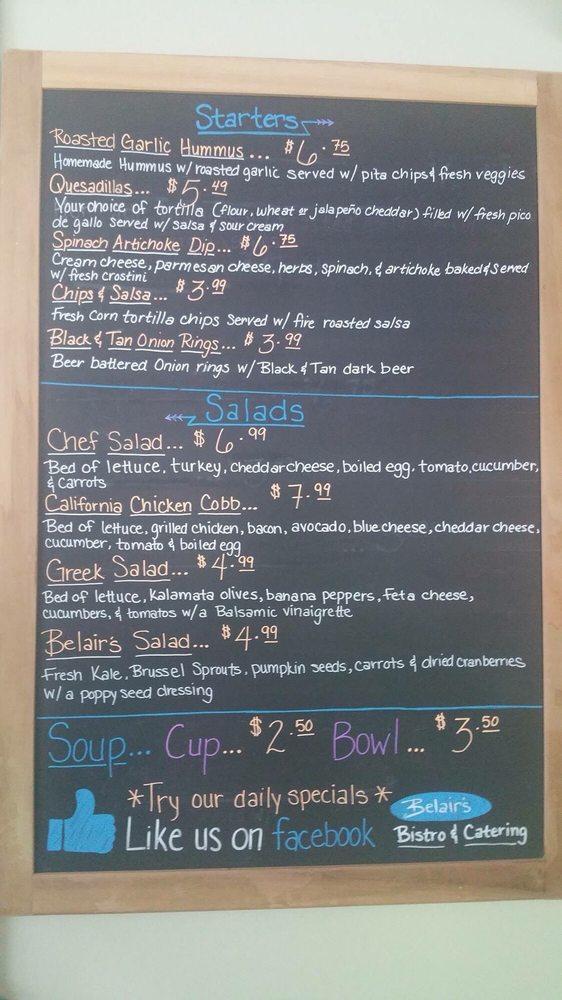 Starters
Roasted Garlic Hummus... $6.75
Homemade Hummus w/roasted garlic served w/ pita chips & fresh veggies
Quesadillas... $5.49
Your choice of tortilla (flour, wheat or jalapeño cheddar) filled w/ fresh pico
de gallo served w/ salsa & sour cream
Spinach Artichoke Dip... $6.75
Cream cheese, parmesan cheese, herbs, spinach, & artichoke baked & served
w/ fresh crostini
Chips & Salsa... $3.99
Fresh Corn tortilla chips served w/ fire roasted salsa
Black & Tan Onion Rings... $3.99
Beer battered Onion rings w/ Black & Tan dark beer
Salads
Chef Salad... $6.99
Bed of lettuce, turkey, cheddar cheese, boiled egg, tomato, cucumber,
& carrots
California Chicken Cobb... $7.99
Bed of lettuce, grilled chicken, bacon, avocado, blue cheese, cheddar cheese,
cucumber, tomato & boiled egg
Greek Salad... $4.99
Bed of lettuce, Kalamata olives, banana peppers, Feta cheese,
cucumbers, & tomatos w/a Balsamic vinaigrette
Belair's Salad... $4.99
Fresh Kale, Brussel Sprouts, pumpkin seeds, carrots & dried cranberries
w/ a poppy seed dressing
Soup... Cup... $2.50 Bowl... $3.50
*Try our daily specials*
Like us on facebook
Belair's
Bistro & Catering